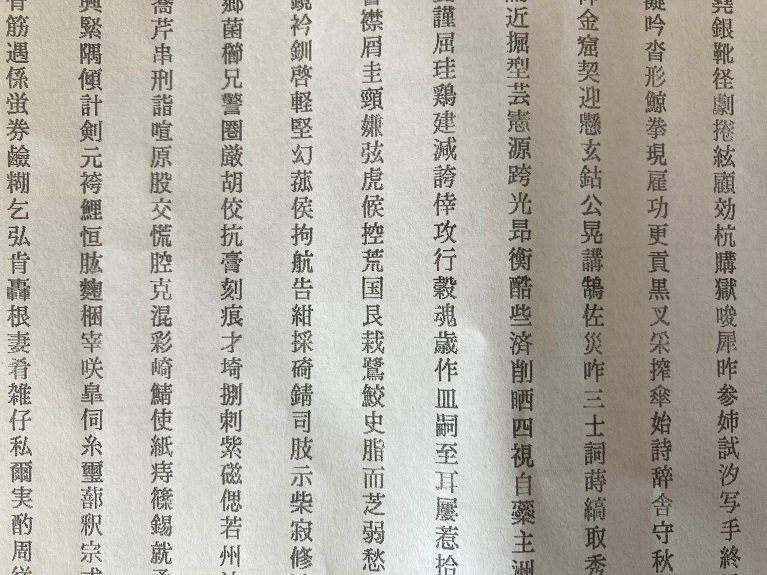 堯銀靴径劇捲絃顧効杭購獄唆犀昨参姉試汐写手終
吟沓形鯨拳現雇功更貢黒叉采搾傘始詩辞舎守秋
金窟契迎懸玄鈷公晃講鵠佐災咋三士詞蒔縞取秀
近掘型芸憲源跨光昂衡酷些済削晒四視自蘂主洲
謹屈珪鶏建減誇倖攻行穀魂歳作皿嗣至耳屡惹拾
襟屑圭頸嫌弦虎候控荒国艮栽鷺鮫史脂而芝弱愁
衿釧啓軽堅幻菰侯拘航告紺採碕錆司肢示柴寂修
郷菌櫛兄警圏厳胡佼抗膏刻痕才埼捌刺紫磁偲若州
喬芹串刑詣喧原股交慌腔克混彩崎鯖使紙痔篠錫就
興緊隅傾計剣元袴鯉恒肱麹梱宰咲皐伺糸璽蔀釈宗
筋遇係蛍券鹸糊乞弘肯轟根妻肴雑仔私爾実酌周